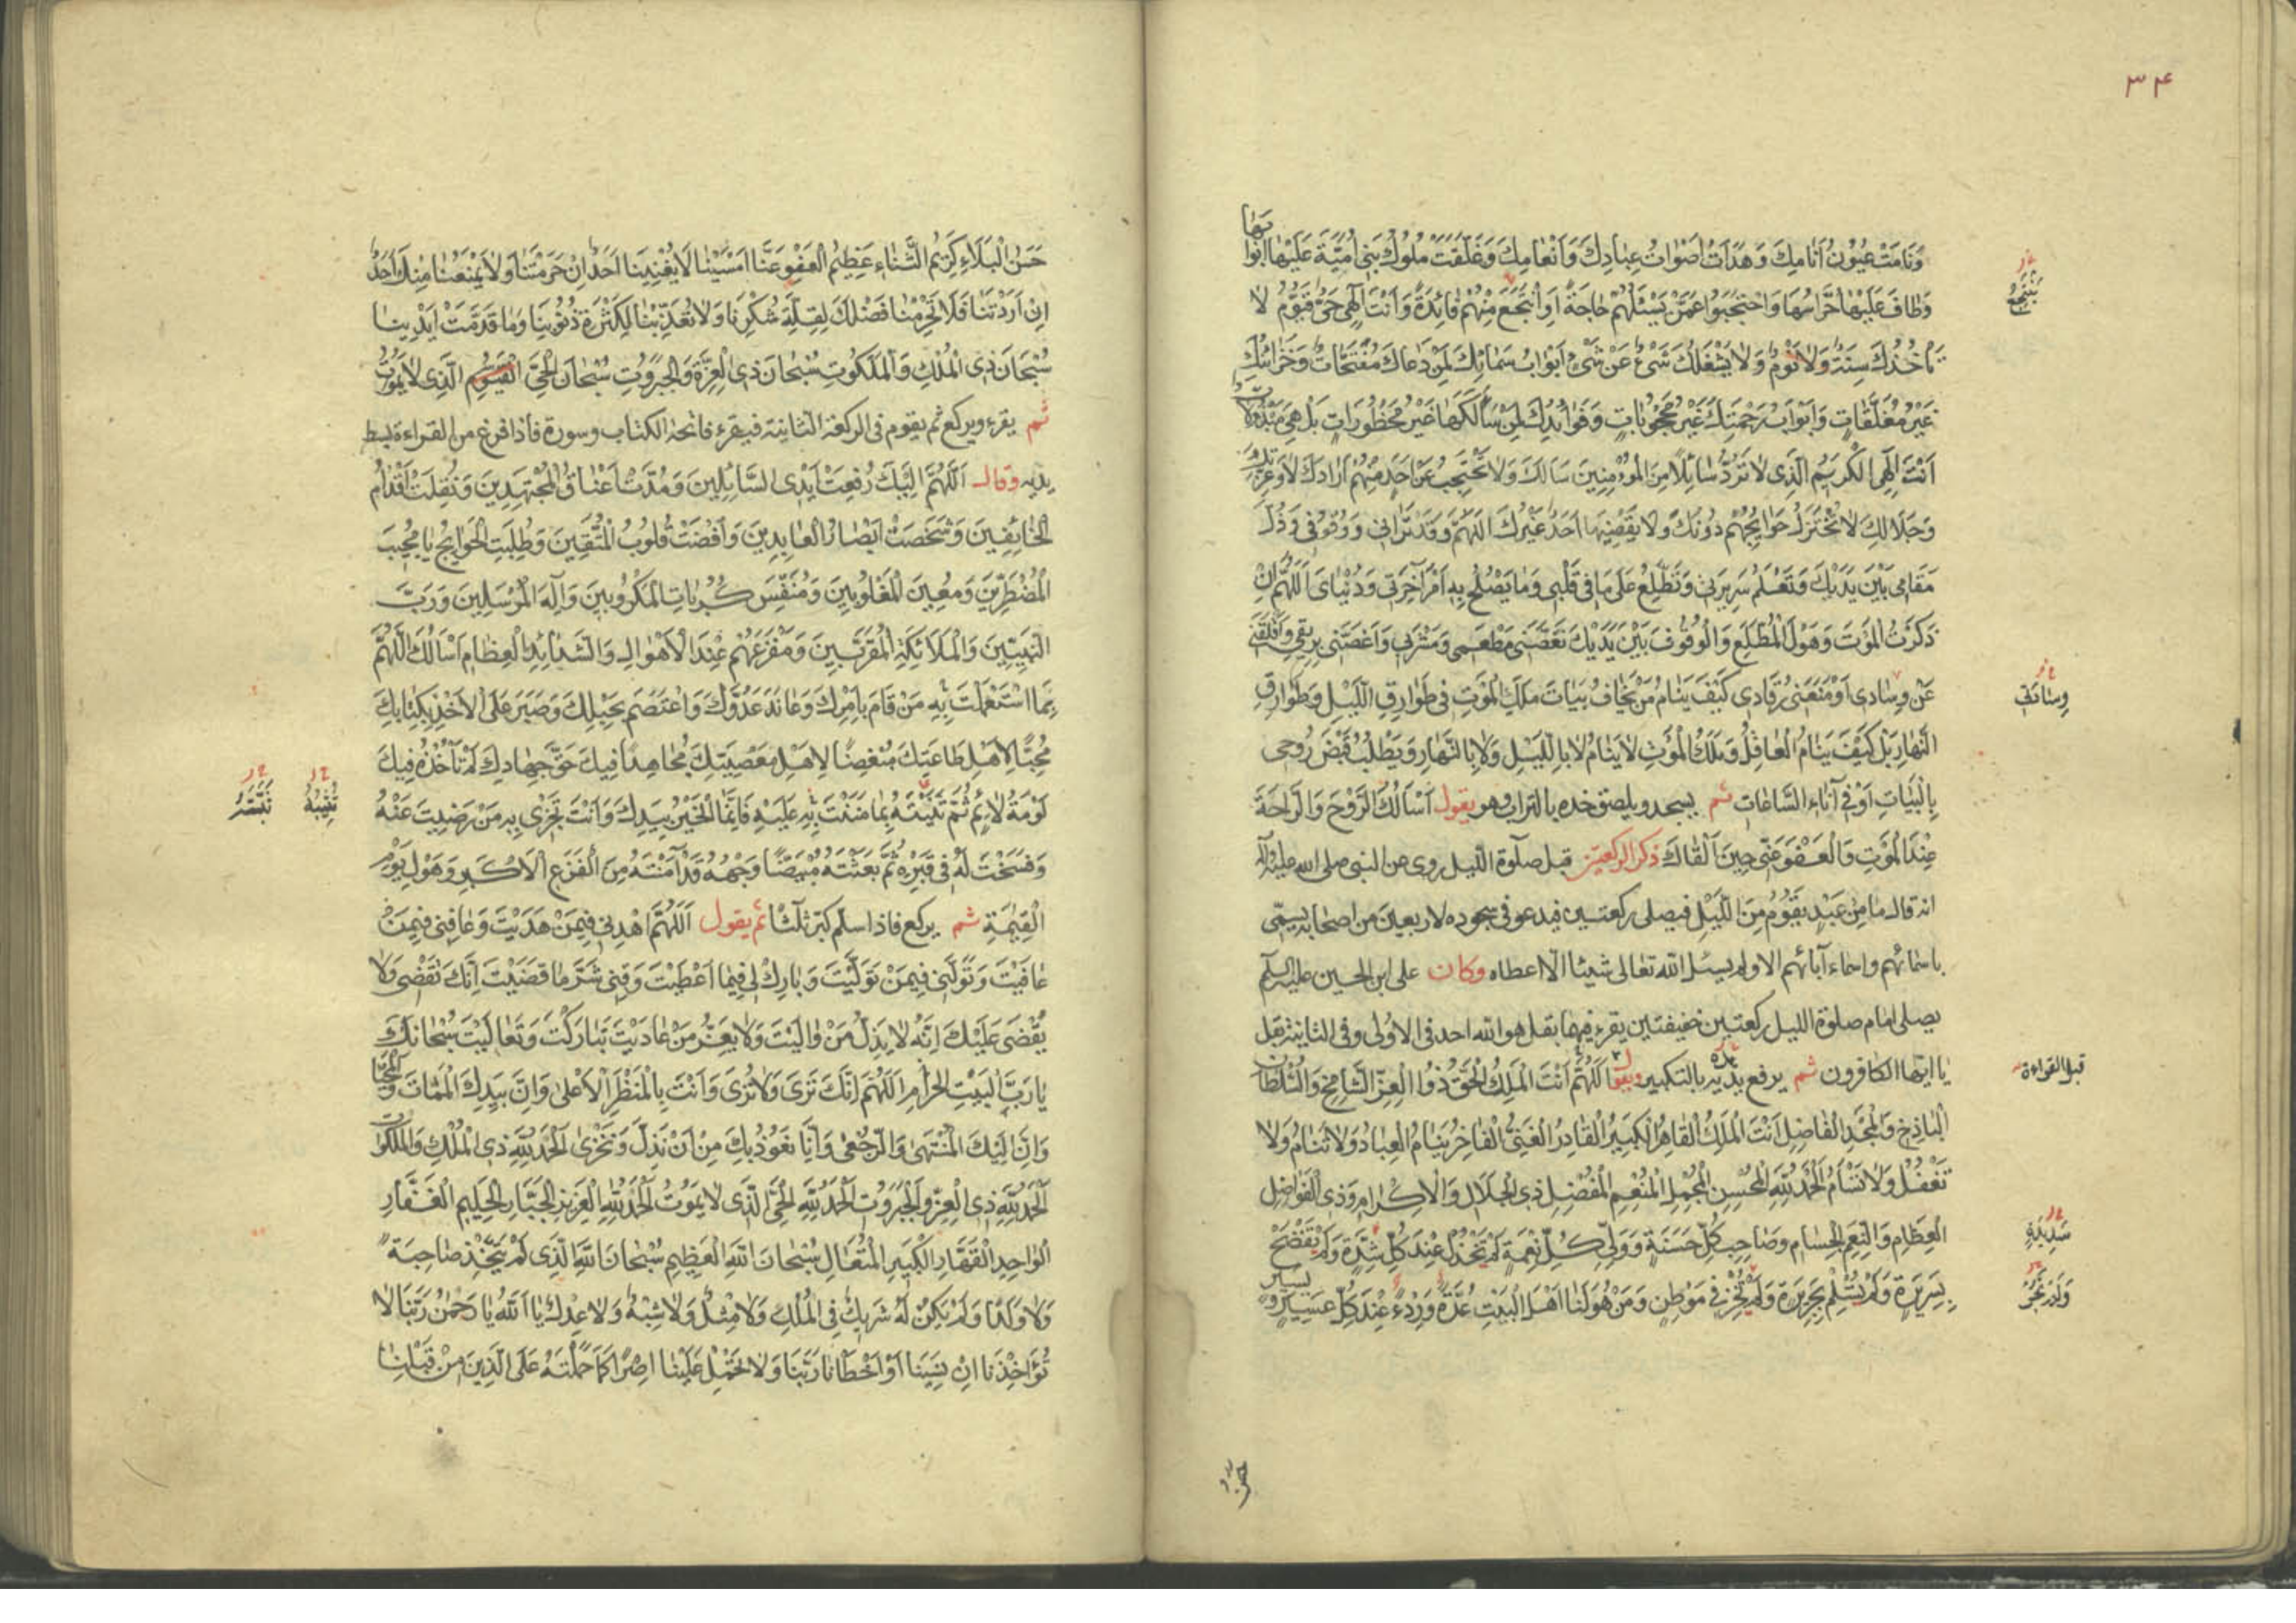 ٣۴
وَنَامَتْ عُيُونُ اَنَامِكَ وَهَدَاَتْ اَصْوَاتُ عِبَادِكَ وَاَنْعَامِكَ وَغَلَّقَتْ مُلُوكُ بَنِي اُمَيَّةَ عَلَيْهَا اَبْوَابَهَا
وَطَافَ عَلَيْهَا حُرَّاسُهَا وَاحْتَجَبُوا عَمَّنْ يَسْئَلُهُمْ حَاجَةً اَوْ يَنْتَجِعُ مِنْهُمْ فَائِدَةً وَاَنْتَ اِلٰهِي حَيٌّ قَيُّومٌ لَا
تَأْخُذُكَ سِنَةٌ وَلَا نَوْمٌ وَلَا يَشْغَلُكَ شَيْءٌ عَنْ شَيْءٍ اَبْوَابُ سَمَائِكَ لِمَنْ دَعَاكَ مُفَتَّحَاتٌ وَخَزَائِنُكَ
غَيْرُ مُغَلَّقَاتٍ وَاَبْوَابُ رَحْمَتِكَ غَيْرُ مَحْجُوبَاتٍ وَفَوَائِدُكَ لِمَنْ سَاَلَكَهَا غَيْرُ مَحْظُورَاتٍ بَلْ هِيَ مَبْذُولَاتٌ
اَنْتَ اِلٰهِي الْكَرِيمُ الَّذِي لَا تَرُدُّ سَائِلًا مِنَ الْمُؤْمِنِينَ سَاَلَكَ وَلَا تَحْتَجِبُ عَنْ اَحَدٍ مِنْهُمْ اَرَادَكَ لَا وَعِزَّتِكَ
وَجَلَالِكَ لَا تُخْتَزَلُ حَوَائِجُهُمْ دُونَكَ وَلَا يَقْضِيهَا اَحَدٌ غَيْرُكَ اَللّٰهُمَّ وَقَدْ تَرَانِي وَوُقُوفِي وَذُلَّ
مَقَامِي بَيْنَ يَدَيْكَ وَتَعْلَمُ سَرِيرَتِي وَتَطَّلِعُ عَلَى مَا فِي قَلْبِي وَمَا يَصْلُحُ بِهِ اَمْرُ آخِرَتِي وَدُنْيَايَ اَللّٰهُمَّ اِنْ
ذَكَرْتُ الْمَوْتَ وَهَوْلَ الْمُطَّلَعِ وَالْوُقُوفَ بَيْنَ يَدَيْكَ نَغَّصَنِي مَطْعَمِي وَمَشْرَبِي وَاَغَصَّنِي بِرِيقِي وَاَقْلَقَنِي
عَنْ وِسَادِي وَمَنَعَنِي رُقَادِي كَيْفَ يَنَامُ مَنْ يَخَافُ بَيَاتَ مَلَكِ الْمَوْتِ فِي طَوَارِقِ اللَّيْلِ وَطَوَارِقِ
النَّهَارِ بَلْ كَيْفَ يَنَامُ الْعَاقِلُ وَمَلَكُ الْمَوْتِ لَا يَنَامُ لَا بِاللَّيْلِ وَلَا بِالنَّهَارِ وَيَطْلُبُ قَبْضَ رُوحِي
بِالْبَيَاتِ اَوْ فِي آنَاءِ السَّاعَاتِ ثم يسجد ويلصق خده بالتراب وهو يقول اَسْأَلُكَ الرَّوْحَ وَالرَّاحَةَ
عِنْدَ الْمَوْتِ وَالْعَفْوَ عَنِّي حِينَ اَلْقَاكَ ذكر الركعتين قبل صلوة الليل روي عن النبي صلى الله عليه وآله
انه قال ما مِنْ عَبْدٍ يَقُومُ مِنَ اللَّيْلِ فيصلي ركعتين فيدعو في سجوده لاربعين من اصحابه يسمي
باسمائهم واسماء آبائهم الا ولم يسئل الله تعالى شيئا الا اعطاه وكان علي ابن الحسين عليه السلم
يصلي امام صلوة الليل ركعتين خفيفتين يقرء فيهما بقل هو الله احد في الاولى وفي الثانية بقل
يا ايها الكافرون ثم يرفع يديه بالتكبير ويقول اَللّٰهُمَّ اَنْتَ الْمَلِكُ الْحَقُّ ذُو الْعِزِّ الشَّامِخِ وَالسُّلْطَانِ
الْبَاذِخِ وَالْمَجْدِ الْفَاضِلِ اَنْتَ الْمَلِكُ الْقَاهِرُ الْكَبِيرُ الْقَادِرُ الْغَنِيُّ الْفَاخِرُ يَنَامُ الْعِبَادُ وَلَا تَنَامُ وَلَا
تَغْفُلُ وَلَا تَسْأَمُ اَلْحَمْدُ لِلّٰهِ الْمُحْسِنِ الْمُجْمِلِ الْمُنْعِمِ الْمُفْضِلِ ذِي الْجَلَالِ وَالْاِكْرَامِ وَذِي الْفَوَاضِلِ
الْعِظَامِ وَالنِّعَمِ الْجِسَامِ وَصَاحِبِ كُلِّ حَسَنَةٍ وَوَلِيِّ كُلِّ نِعْمَةٍ لَمْ تَخْذُلْ عِنْدَ كُلِّ شِدَّةٍ وَلَمْ تَفْضَحْ
بِسَرِيرَةٍ وَلَمْ تُسْلِمْ بِجَرِيرَةٍ وَلَمْ تُخْزِ فِي مَوْطِنٍ وَمَنْ هُوَ لَنَا اَهْلَ الْبَيْتِ عُدَّةٌ وَرِدْءٌ عِنْدَ كُلِّ عَسِيرٍ وَيَسِيرٍ
يَنْتَجِعُ
وِسَادَتِي
قبل القراءة
شَدِيدَةٍ
حسن
حَسَنُ الْبَلَاءِ كَرِيمُ الثَّنَاءِ عَظِيمُ الْعَفْوِ عَنَّا اَمْسَيْنَا لَا يُغْنِينَا اَحَدٌ اِنْ حَرَمْتَنَا وَلَا يَمْنَعُنَا مِنْكَ اَحَدٌ
اِنْ اَرَدْتَنَا فَلَا تَحْرِمْنَا فَضْلَكَ لِقِلَّةِ شُكْرِنَا وَلَا تُعَذِّبْنَا لِكَثْرَةِ ذُنُوبِنَا وَمَا قَدَّمَتْ اَيْدِينَا
سُبْحَانَ ذِي الْمُلْكِ وَالْمَلَكُوتِ سُبْحَانَ ذِي الْعِزَّةِ وَالْجَبَرُوتِ سُبْحَانَ الْحَيِّ الْقَيُّومِ الَّذِي لَا يَمُوتُ
ثم يقرء ويركع ثم يقوم في الركعة الثانية فيقرء فاتحة الكتاب وسورة فاذا فرغ من القراءة بسط
يديه وقال اَللّٰهُمَّ اِلَيْكَ رُفِعَتْ اَيْدِي السَّائِلِينَ وَمُدَّتْ اَعْنَاقُ الْمُجْتَهِدِينَ وَنُقِلَتْ اَقْدَامُ
الْخَائِفِينَ وَشَخَصَتْ اَبْصَارُ الْعَابِدِينَ وَاَفْضَتْ قُلُوبُ الْمُتَّقِينَ وَطُلِبَتِ الْحَوَائِجُ يَا مُجِيبَ
الْمُضْطَرِّينَ وَمُعِينَ الْمَغْلُوبِينَ وَمُنَفِّسَ كُرُبَاتِ الْمَكْرُوبِينَ وَاِلٰهَ الْمُرْسَلِينَ وَرَبَّ
النَّبِيِّينَ وَالْمَلَائِكَةِ الْمُقَرَّبِينَ وَمَفْزَعَهُمْ عِنْدَ الْاَهْوَالِ وَالشَّدَائِدِ الْعِظَامِ اَسْأَلُكَ اللّٰهُمَّ
بِمَا اسْتَعْمَلْتَ بِهِ مَنْ قَامَ بِاَمْرِكَ وَعَانَدَ عَدُوَّكَ وَاعْتَصَمَ بِحَبْلِكَ وَصَبَرَ عَلَى الْاَخْذِ بِكِتَابِكَ
مُحِبًّا لِاَهْلِ طَاعَتِكَ مُبْغِضًا لِاَهْلِ مَعْصِيَتِكَ مُجَاهِدًا فِيكَ حَقَّ جِهَادِكَ لَمْ تَأْخُذْهُ فِيكَ
لَوْمَةُ لَائِمٍ ثُمَّ ثَبَّتَّهُ بِمَا مَنَنْتَ بِهِ عَلَيْهِ فَاِنَّمَا الْخَيْرُ بِيَدِكَ وَاَنْتَ تَجْزِي بِهِ مَنْ رَضِيتَ عَنْهُ
وَفَسَحْتَ لَهُ فِي قَبْرِهِ ثُمَّ بَعَثْتَهُ مُبْيَضًّا وَجْهُهُ قَدْ آمَنْتَهُ مِنَ الْفَزَعِ الْاَكْبَرِ وَهَوْلِ يَوْمِ
الْقِيٰمَةِ ثم يركع فاذا سلم كبر ثلثا ثم يقول اَللّٰهُمَّ اهْدِنِي فِيمَنْ هَدَيْتَ وَعَافِنِي فِيمَنْ
عَافَيْتَ وَتَوَلَّنِي فِيمَنْ تَوَلَّيْتَ وَبَارِكْ لِي فِيمَا اَعْطَيْتَ وَقِنِي شَرَّ مَا قَضَيْتَ اِنَّكَ تَقْضِي وَلَا
يُقْضَى عَلَيْكَ اِنَّهُ لَا يَذِلُّ مَنْ وَالَيْتَ وَلَا يَعِزُّ مَنْ عَادَيْتَ تَبَارَكْتَ وَتَعَالَيْتَ سُبْحَانَكَ
يَا رَبَّ الْبَيْتِ الْحَرَامِ اَللّٰهُمَّ اِنَّكَ تَرَى وَلَا تُرَى وَاَنْتَ بِالْمَنْظَرِ الْاَعْلَى وَاِنَّ بِيَدِكَ الْمَمَاتَ وَالْمَحْيَا
وَاِنَّ اِلَيْكَ الْمُنْتَهَى وَالرُّجْعَى وَاِنَّا نَعُوذُ بِكَ مِنْ اَنْ نَذِلَّ وَنَخْزَى اَلْحَمْدُ لِلّٰهِ ذِي الْمُلْكِ وَالْمَلَكُوتِ
اَلْحَمْدُ لِلّٰهِ ذِي الْعِزِّ وَالْجَبَرُوتِ اَلْحَمْدُ لِلّٰهِ الْحَيِّ الَّذِي لَا يَمُوتُ اَلْحَمْدُ لِلّٰهِ الْعَزِيزِ الْجَبَّارِ الْحَلِيمِ الْغَفَّارِ
الْوَاحِدِ الْقَهَّارِ الْكَبِيرِ الْمُتَعَالِ سُبْحَانَ اللّٰهِ الْعَظِيمِ سُبْحَانَ اللّٰهِ الَّذِي لَمْ يَتَّخِذْ صَاحِبَةً
وَلَا وَلَدًا وَلَمْ يَكُنْ لَهُ شَرِيكٌ فِي الْمُلْكِ وَلَا مِثْلٌ وَلَا شِبْهٌ وَلَا عِدْلٌ يَا اَللّٰهُ يَا رَحْمٰنُ رَبَّنَا لَا
تُؤَاخِذْنَا اِنْ نَسِينَا اَوْ اَخْطَأْنَا رَبَّنَا وَلَا تَحْمِلْ عَلَيْنَا اِصْرًا كَمَا حَمَلْتَهُ عَلَى الَّذِينَ مِنْ قَبْلِنَا